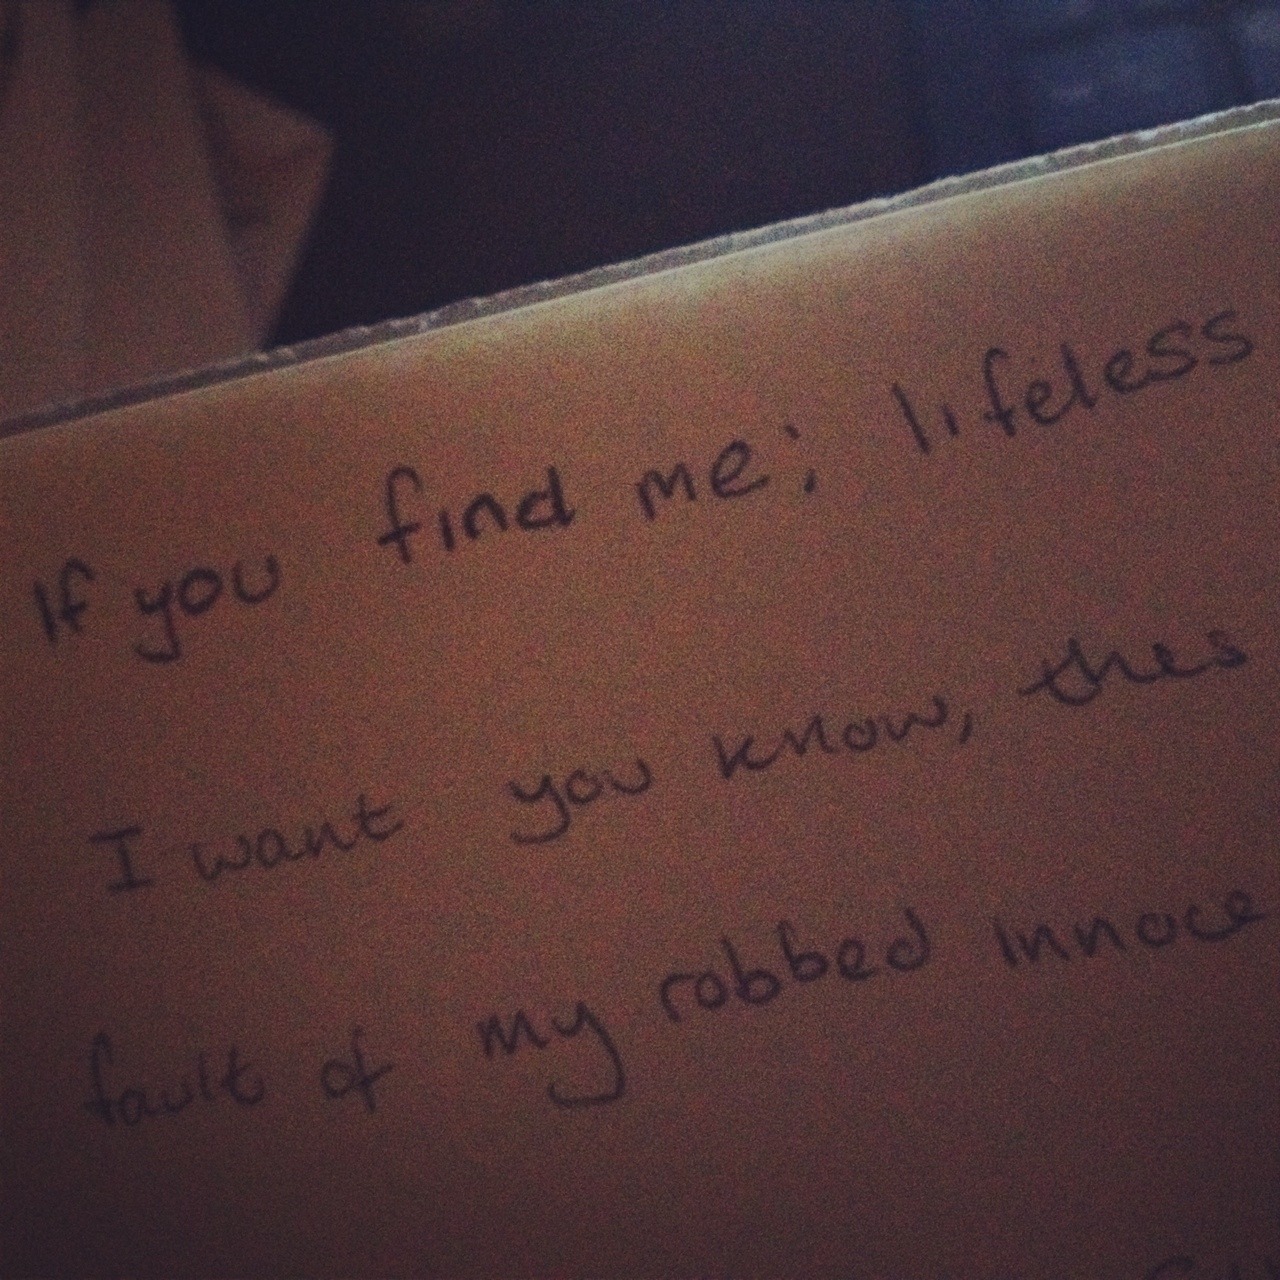 If you find me; lifeless
I want you know, thes
fault of my robbed innoce